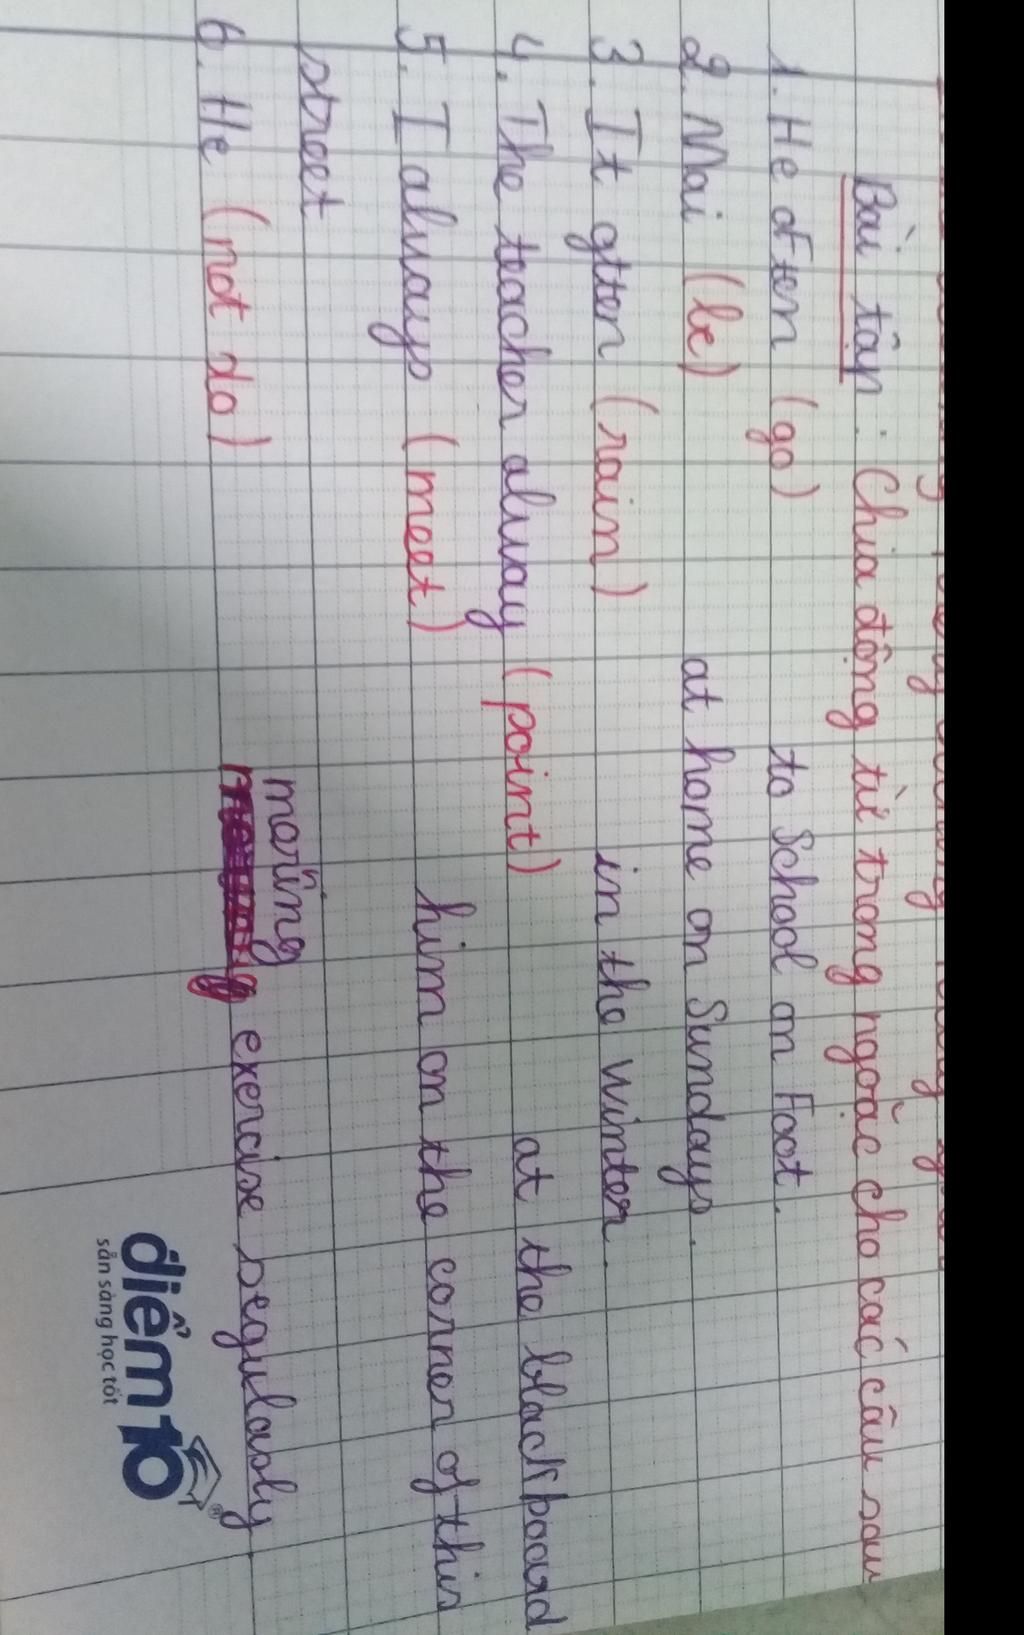 Bài tập : Chia động từ trong ngoặc cho các câu sau
1. He often (go) to School on Foot.
2. Mai (be) at home on Sundays.
3. It often (rain) in the winter.
4. The teacher alway (point) at the blackboard
5. I always (meet) him on the corner of this
street
6. He (not do) morning exercise regularly.
điểm 10
sẵn sàng học tốt